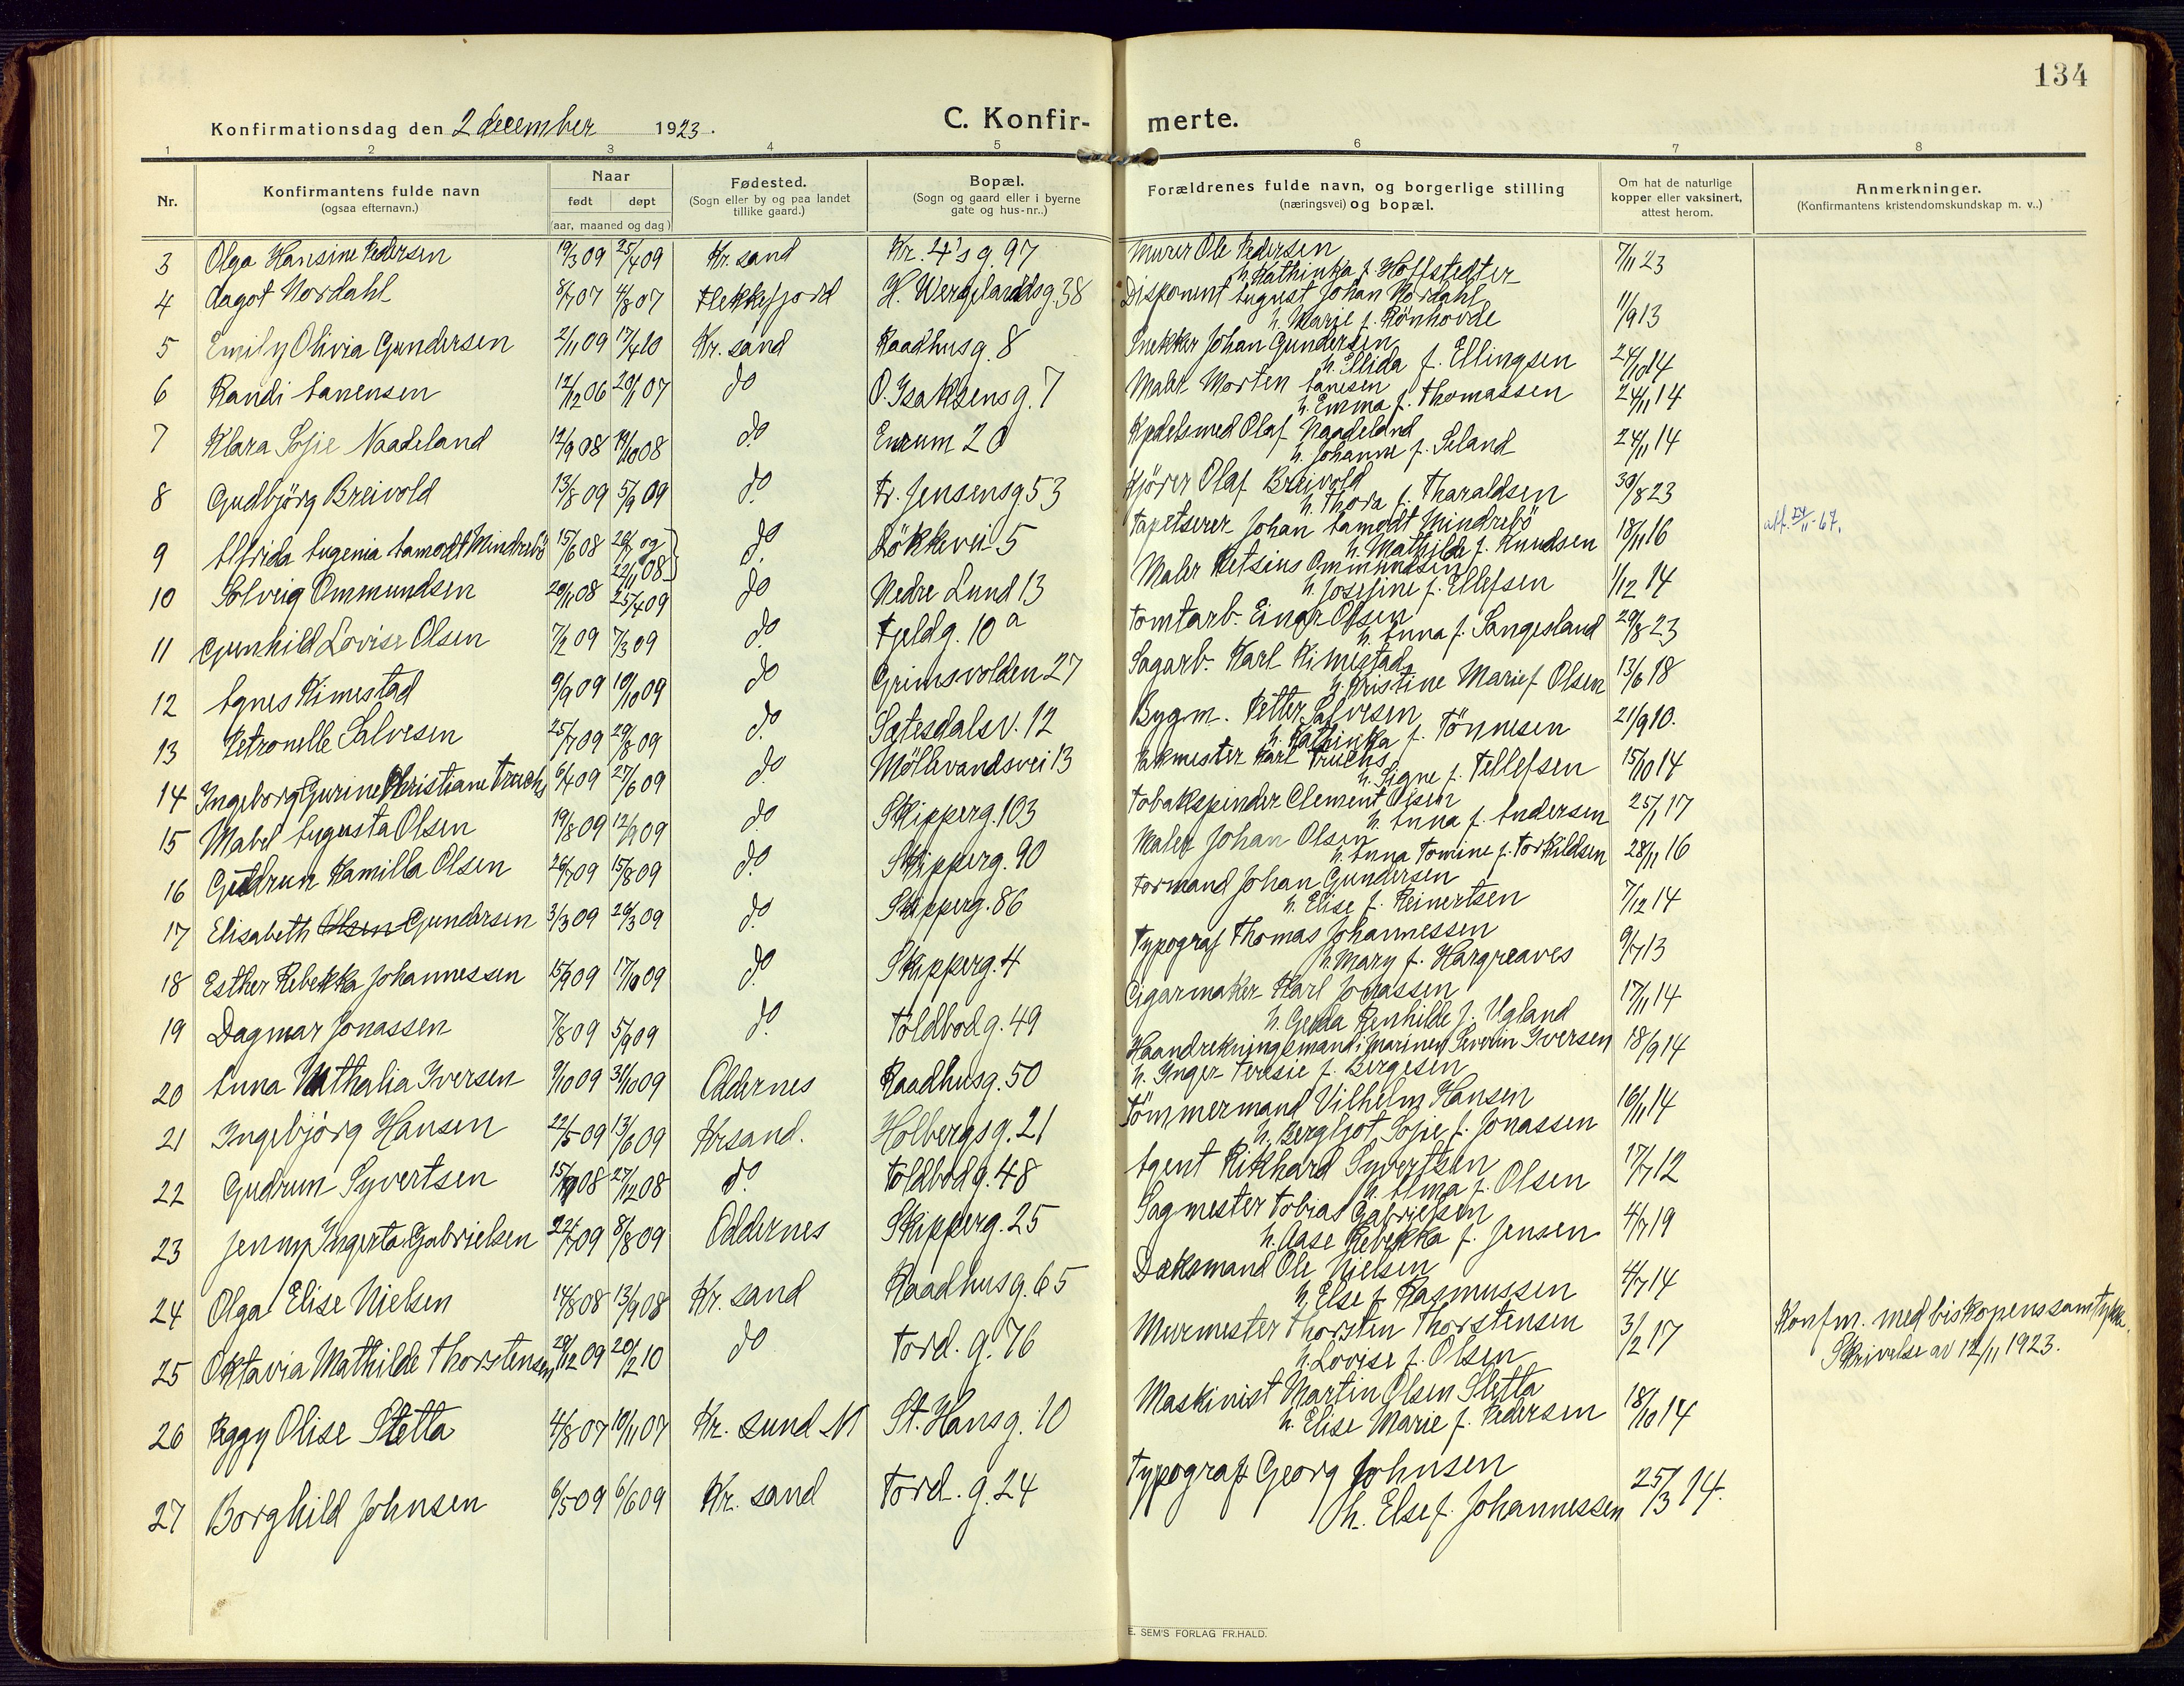 134
Konfirmationsdag den 2 december 1923.
C. Konfir- merte.
1 2 3 4 5 6 7 8
Nr.
Konfirmantens fulde navn
(ogsaa efternavn.)
Naar
født døpt
(aar, maaned og dag)
Fødested.
(Sogn eller by og paa landet
tillike gaard.)
Bopæl.
(Sogn og gaard eller i byerne
gate og hus-nr..)
Forældrenes fulde navn, og borgerlige stilling
(næringsvei) og bopæl.
Om hat de naturlige
kopper eller vaksinert,
attest herom.
Anmerkninger.
(Konfirmantens kristendomskundskap m. v..)
3 Olga Hansine Pedersen 19/3 09 25/4 09 Kr. sand Kr. 4's g. 97 Murer Ole Pedersen 7/11 23
h. Kathinka f. Hoffstedter
4 Aagot Nordahl 8/7 07 4/8 07 Flekkefjord H. Wergelandsg. 38 Disponent August Johan Nordahl 11/9 13
h. Marie f. Rönhovde
5 Emily Olivia Gundersen 2/11 09 17/4 10 Kr. sand Raadhusg. 8 Snekker Johan Gundersen 24/10 14
h. Ellida f. Ellingsen
6 Randi Aanensen 12/12 06 20/1 07 do O. Isaksensg. 7 Maler Morten Aanesen 24/11 14
h. Emma f. Thomassen
7 Klara Sofie Naadeland 12/9 08 19/10 08 do Enrum 20 Kjedelsmed Olaf Naadeland 24/11 14
h. Johanne f. Seland
8 Gudbjörg Breivold 13/8 09 5/9 09 do Fr. Jensensg 53 Kjörer Olaf Breivold 30/8 23
h. Thora f. Tharaldsen
9 Alfrida Eugenia Aamodt Mindrebö 15/6 08 26/7 og 22/11 08 do Lökkevei 5 Tapetserer Johan Aamodt Mindrebö 18/11 16
h. Mathilde f. Knudsen
att. 24/11-67.
10 Solveig Ommundsen 20/11 08 25/4 09 do Nedre Lund 13 Maler Betsius Ommundsen 1/12 14
h. Josefine f. Ellefsen
11 Gunhild Lovise Olsen 7/2 09 7/3 09 do Fjeldg. 10 a Tomtarb. Einar Olsen 29/8 23
h. Anna f. Sangesland
12 Agnes Kimestad 9/9 09 10/10 09 do Grimsvolden 27 Sagarb. Karl Kimestad 13/6 18
h. Kristine Marie f. Olsen
13 Petronelle Salvesen 25/7 09 29/8 09 do Sætesdalsv. 12 Bygm. Petter Salvesen 21/9 10.
h. Kathinka f. Tönnesen
14 Ingeborg Gurine Christiane Fruchs 6/4 09 27/6 09 do Möllevandsvei 13 Pakmester Karl Fruchs 15/10 14
h. Signe f. Tellefsen
15 Mabel Augusta Olsen 19/8 09 12/9 09 do Skipperg. 103 Tobakspinder Clement Olsen 25/1 17
h. Anna f. Andersen
16 Gudrun Kamilla Olsen 26/7 09 15/8 09 do Skipperg. 90 Maler Johan Olsen 28/11 16
h. Anna Tomine f. Torkildsen
17 Elisabeth Olsen Gundersen 3/3 09 26/3 09 do Skipperg. 86 Formand Johan Gundersen 7/12 14
h. Elise f. Reinertsen
18 Esther Rebekka Johannessen 15/9 09 17/10 09 do Skipperg. 4 Typograf Thomas Johannessen 9/7 13
h. Mary f. Hargreaves
19 Dagmar Jonassen 7/8 09 5/9 09 do Toldbodg. 49 Cigarmaker Karl Jonassen 17/11 14
h. Gerda Renhilde f. Ugland
20 Anna Nathalia Iversen 9/10 09 31/10 09 Oddernes Raadhusg. 50 Haandrekningsmand i Marinen Severin Iversen 18/9 14
h. Inger Teresie f. Bergesen
21 Ingebjörg Hansen 22/5 09 13/6 09 Krsand. Holbergsg. 21 Tömmermand Vilhelm Hansen 16/11 14
h. Bergljot Sofie f. Jonassen
22 Gudrun Syvertsen 15/9 08 27/12 08 do Toldbodg. 48 Agent Rikhard Syvertsen 17/7 12
h. Alma f. Olsen
23 Jenny Ingerta Gabrielsen 22/7 09 8/8 09 Oddernes Skipperg. 25 Sagmester Tobias Gabrielsen 4/7 19
h. Aase Rebekka f. Jensen
24 Olga Elise Nielsen 14/8 08 13/9 08 Kr. sand Raadhusg. 65 Dæksmand Ole Nielsen 4/7 14
h. Else f. Rasmussen
25 Oktavia Mathilde Thorstensen 29/12 09 20/2 10 do Tord. g. 76 Murmester Thorsten Thorstensen 3/2 17
h. Lovise f. Olsen
Konfm. med biskopens samtykke.
Skrivelse av 12/11 1923.
26 Peggy Olise Sletta 4/8 07 10/11 07 Kr. sund N St. Hansg. 10 Maskinist Martin Olsen Sletta 18/10 14
h. Elise Marie f. Pedersen
27 Borghild Johnsen 6/5 09 6/6 09 Kr. sand Tord. g. 24 Typograf Georg Johnsen 25/3 14.
h. Else f. Johannessen
E. SEM'S FORLAG FR.HALD.